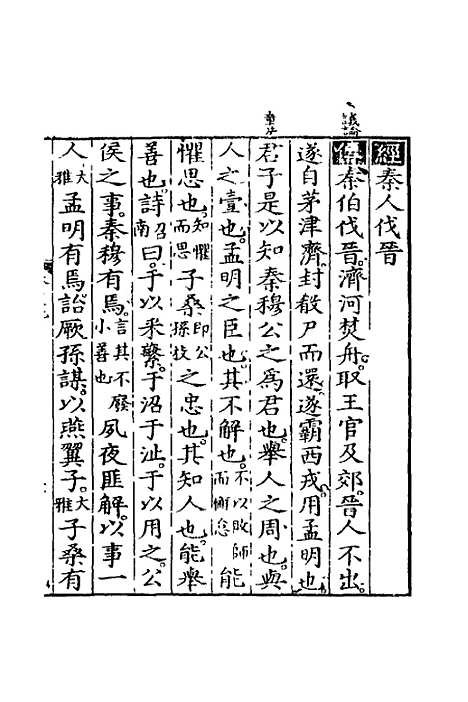 經秦人伐晉
議論
傳秦伯伐晉。濟河焚舟。取王官及郊。晉人不出。
遂自茅津濟。封殽尸而還。遂霸西戎。用孟明也。
君子是以知秦穆公之爲君也。舉人之周也。與
人之壹也。孟明之臣也。其不解也。不以敗師而懈怠能
懼思也。知懼而思子桑卽公孫枝之忠也。其知人也。能舉
善也。詩召南曰。于以采蘩。于沼于沚。于以用之。公
侯之事。秦穆有焉。言其不廢小善也夙夜匪解。以事一
人大雅孟明有焉。詒厥孫謀。以燕翼子。大雅子桑有